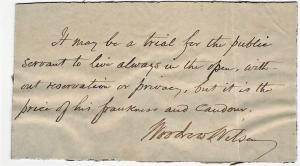 It may be a trial for the public
servant to live always in the open, with-
out reservation or privacy, but it is the
price of his frankness and candour.
Woodrow Wilson